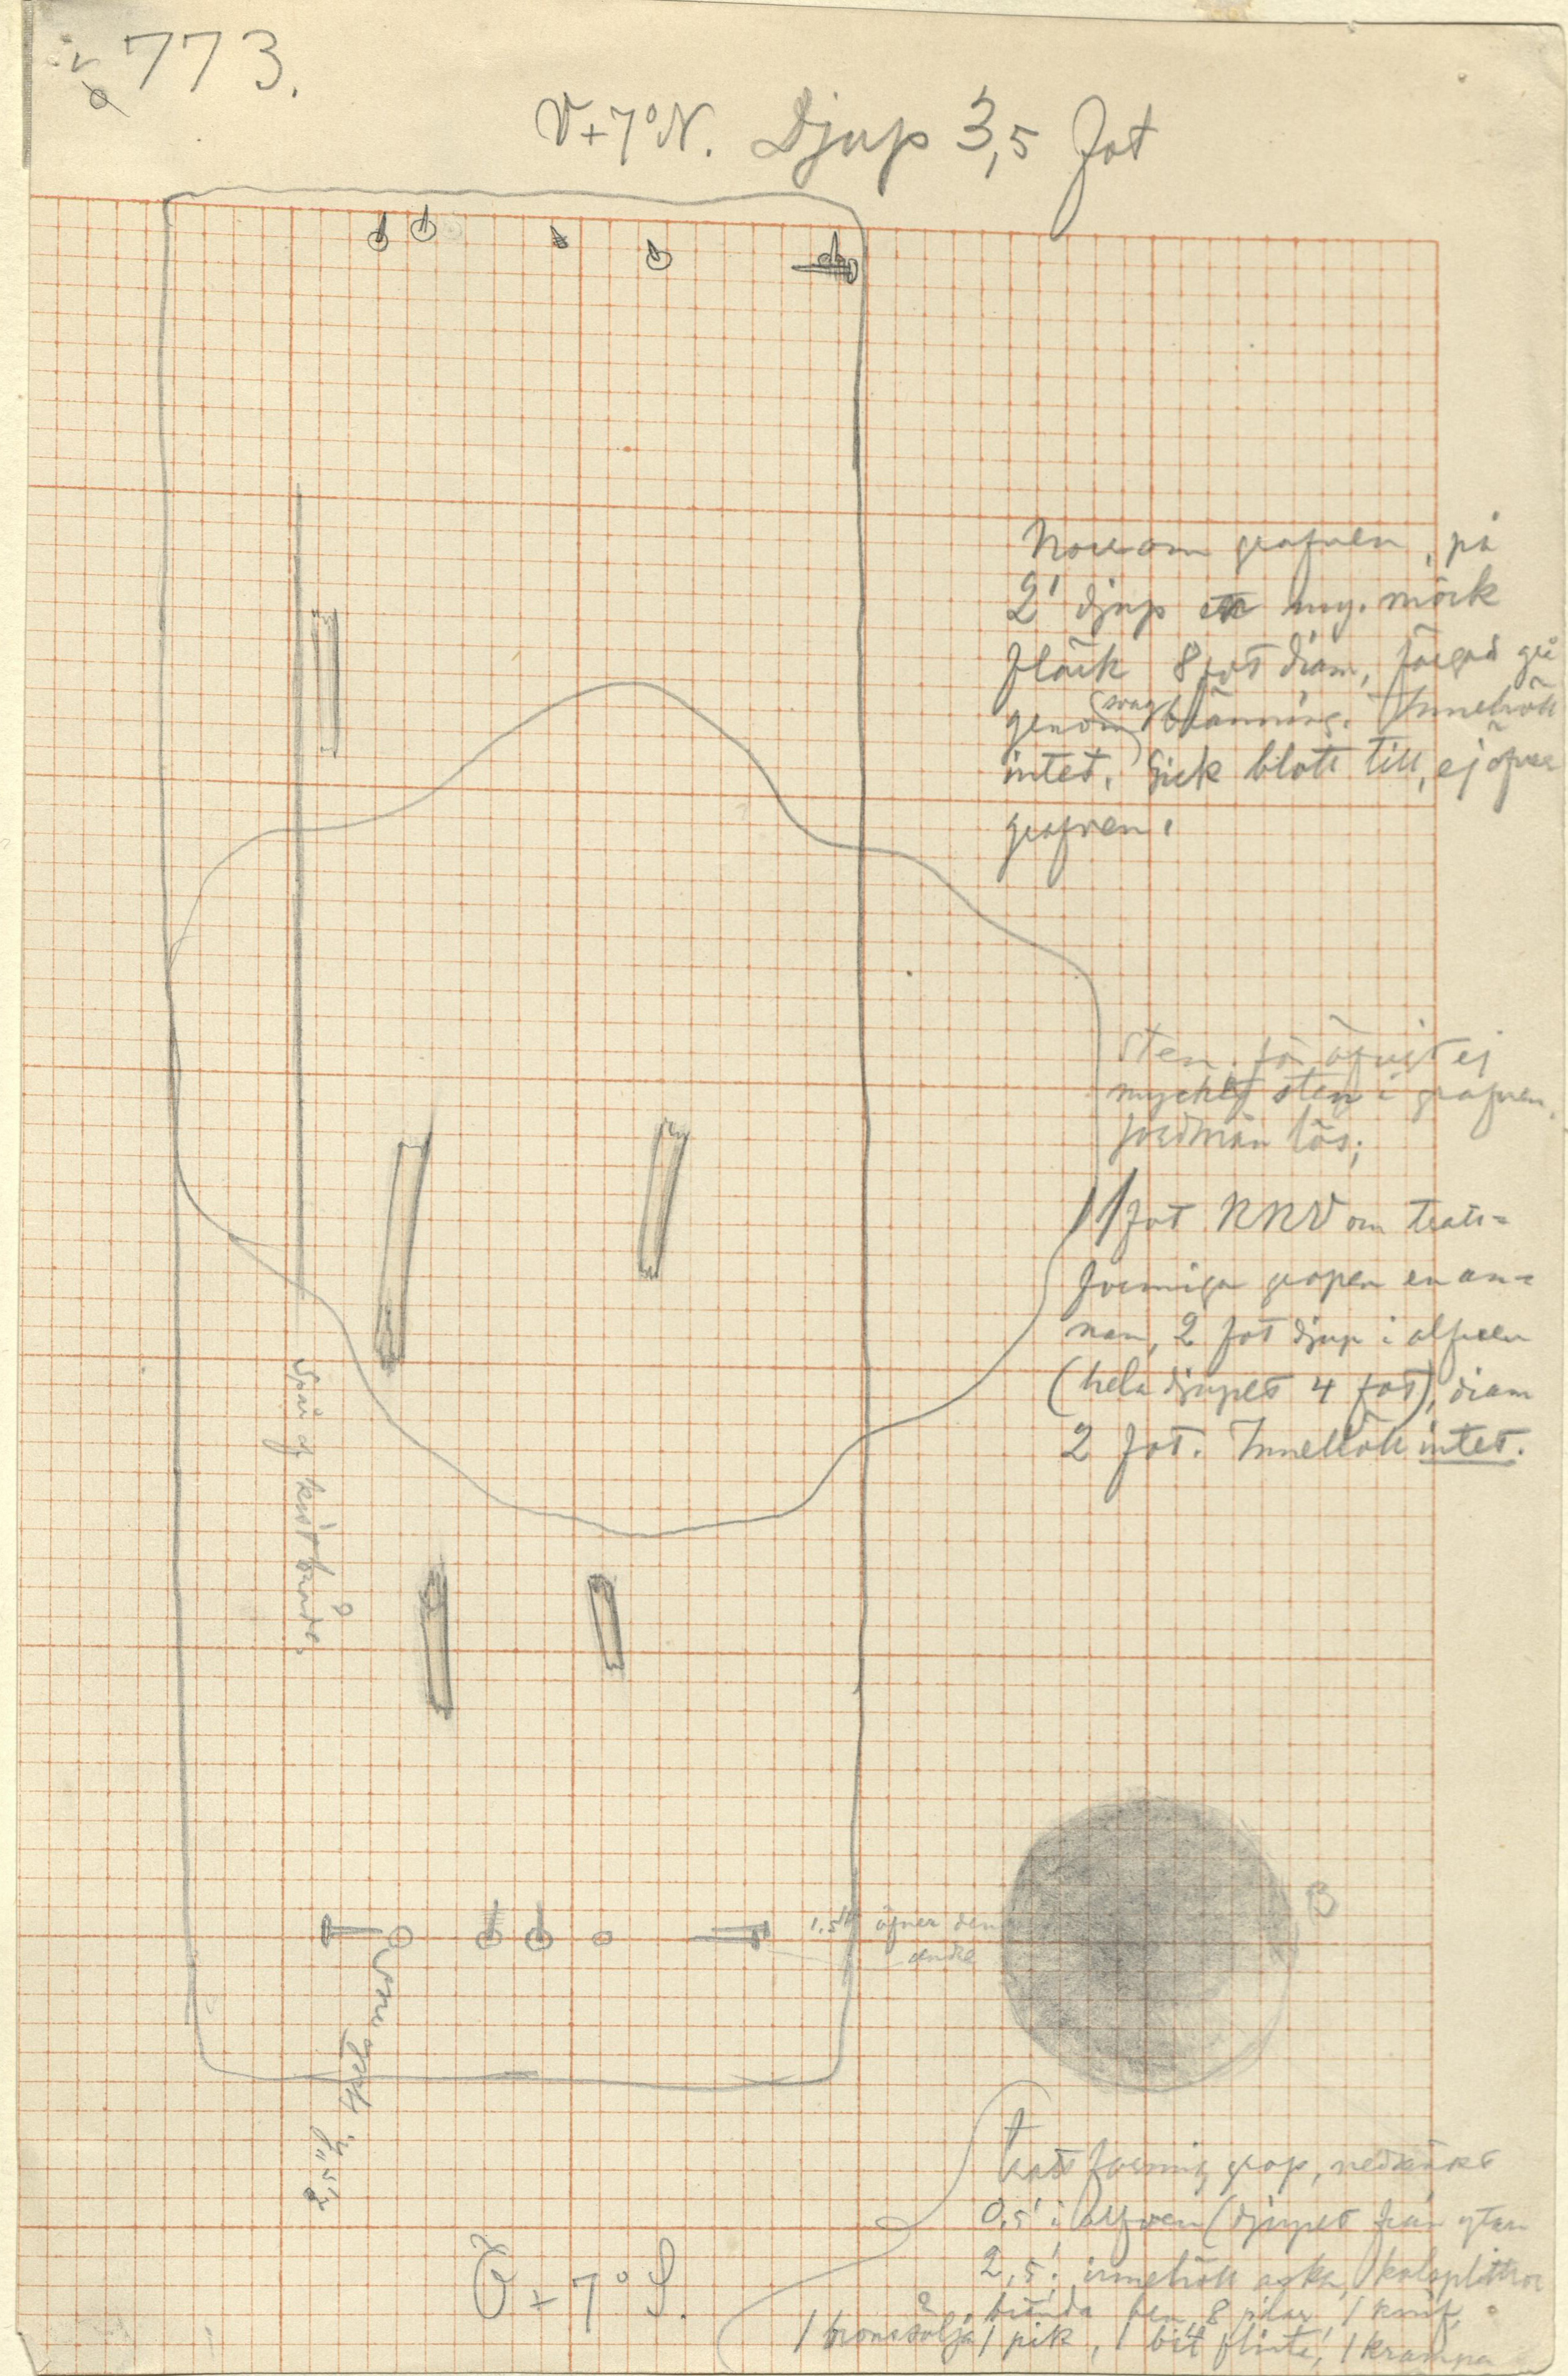 773.
V+7°N. Djup 3,5 fot
Norr om grafven, på
2' djup en my. mörk
fläck 8 fot diam, färgad
genom svag bränning. Innehöll
intet. Gick blott till, ej öfver
grafven.
Sten. för öfrigt ej
mycket sten i grafven,
jordmån lös;
11 fot NNV om tratt=
formiga gropen en an=
nan, 2 fot djup i alfven
(hela djupet 4 fot), diam
2 fot. Innehöll intet.
Spår af kistbräde.
1.5" öfver den
andra
B
trattformig grop, nedsänkt
0,5' i alfven (djupet från ytan
2,5'; innehöll aska, kolsplittror
brända ben, 8 pilar, 1 knif,
1 bronssölja, 1 pik, 1 bit flinta, 1 krampa
Ö+7°S.